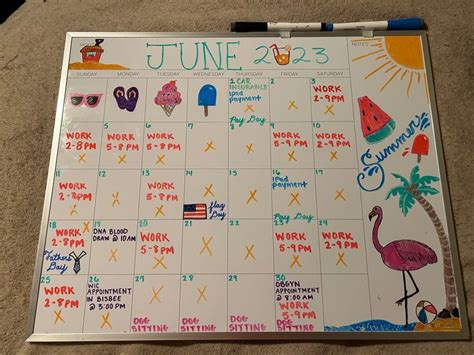 JUNE 2023
NOTES
SUNDAY MONDAY TUESDAY WEDNESDAY THURSDAY FRIDAY SATURDAY
1 CAR
INSURANCE
ipad
payment
Pay Day
2
3
WORK
2-9PM
4
WORK
2-8PM
5
WORK
5-8PM
6
WORK
5-8PM
7
8
9
WORK
5-9PM
10
WORK
5-9PM
11
WORK
2-8PM
12
13
WORK
5-8PM
14
Flag
Day
15
16
ipad
payment
Pay Day
17
WORK
2-9PM
18
WORK
2-8PM
Fathers
Day
19
DNA BLOOD
DRAW @ 10AM
20
WORK
5-9PM
21
22
23
WORK
5-9PM
24
WORK
5-9PM
25
WORK
2-8PM
26
WIC
APPOINTMENT
IN BISBEE
@ 3:00 PM
27
DOG
SITTING
28
DOG
SITTING
29
DOG
SITTING
30
OBGYN
APPOINTMENT
@ 8:00 AM
WORK
5-9PM
DOG
SITTING
Summer